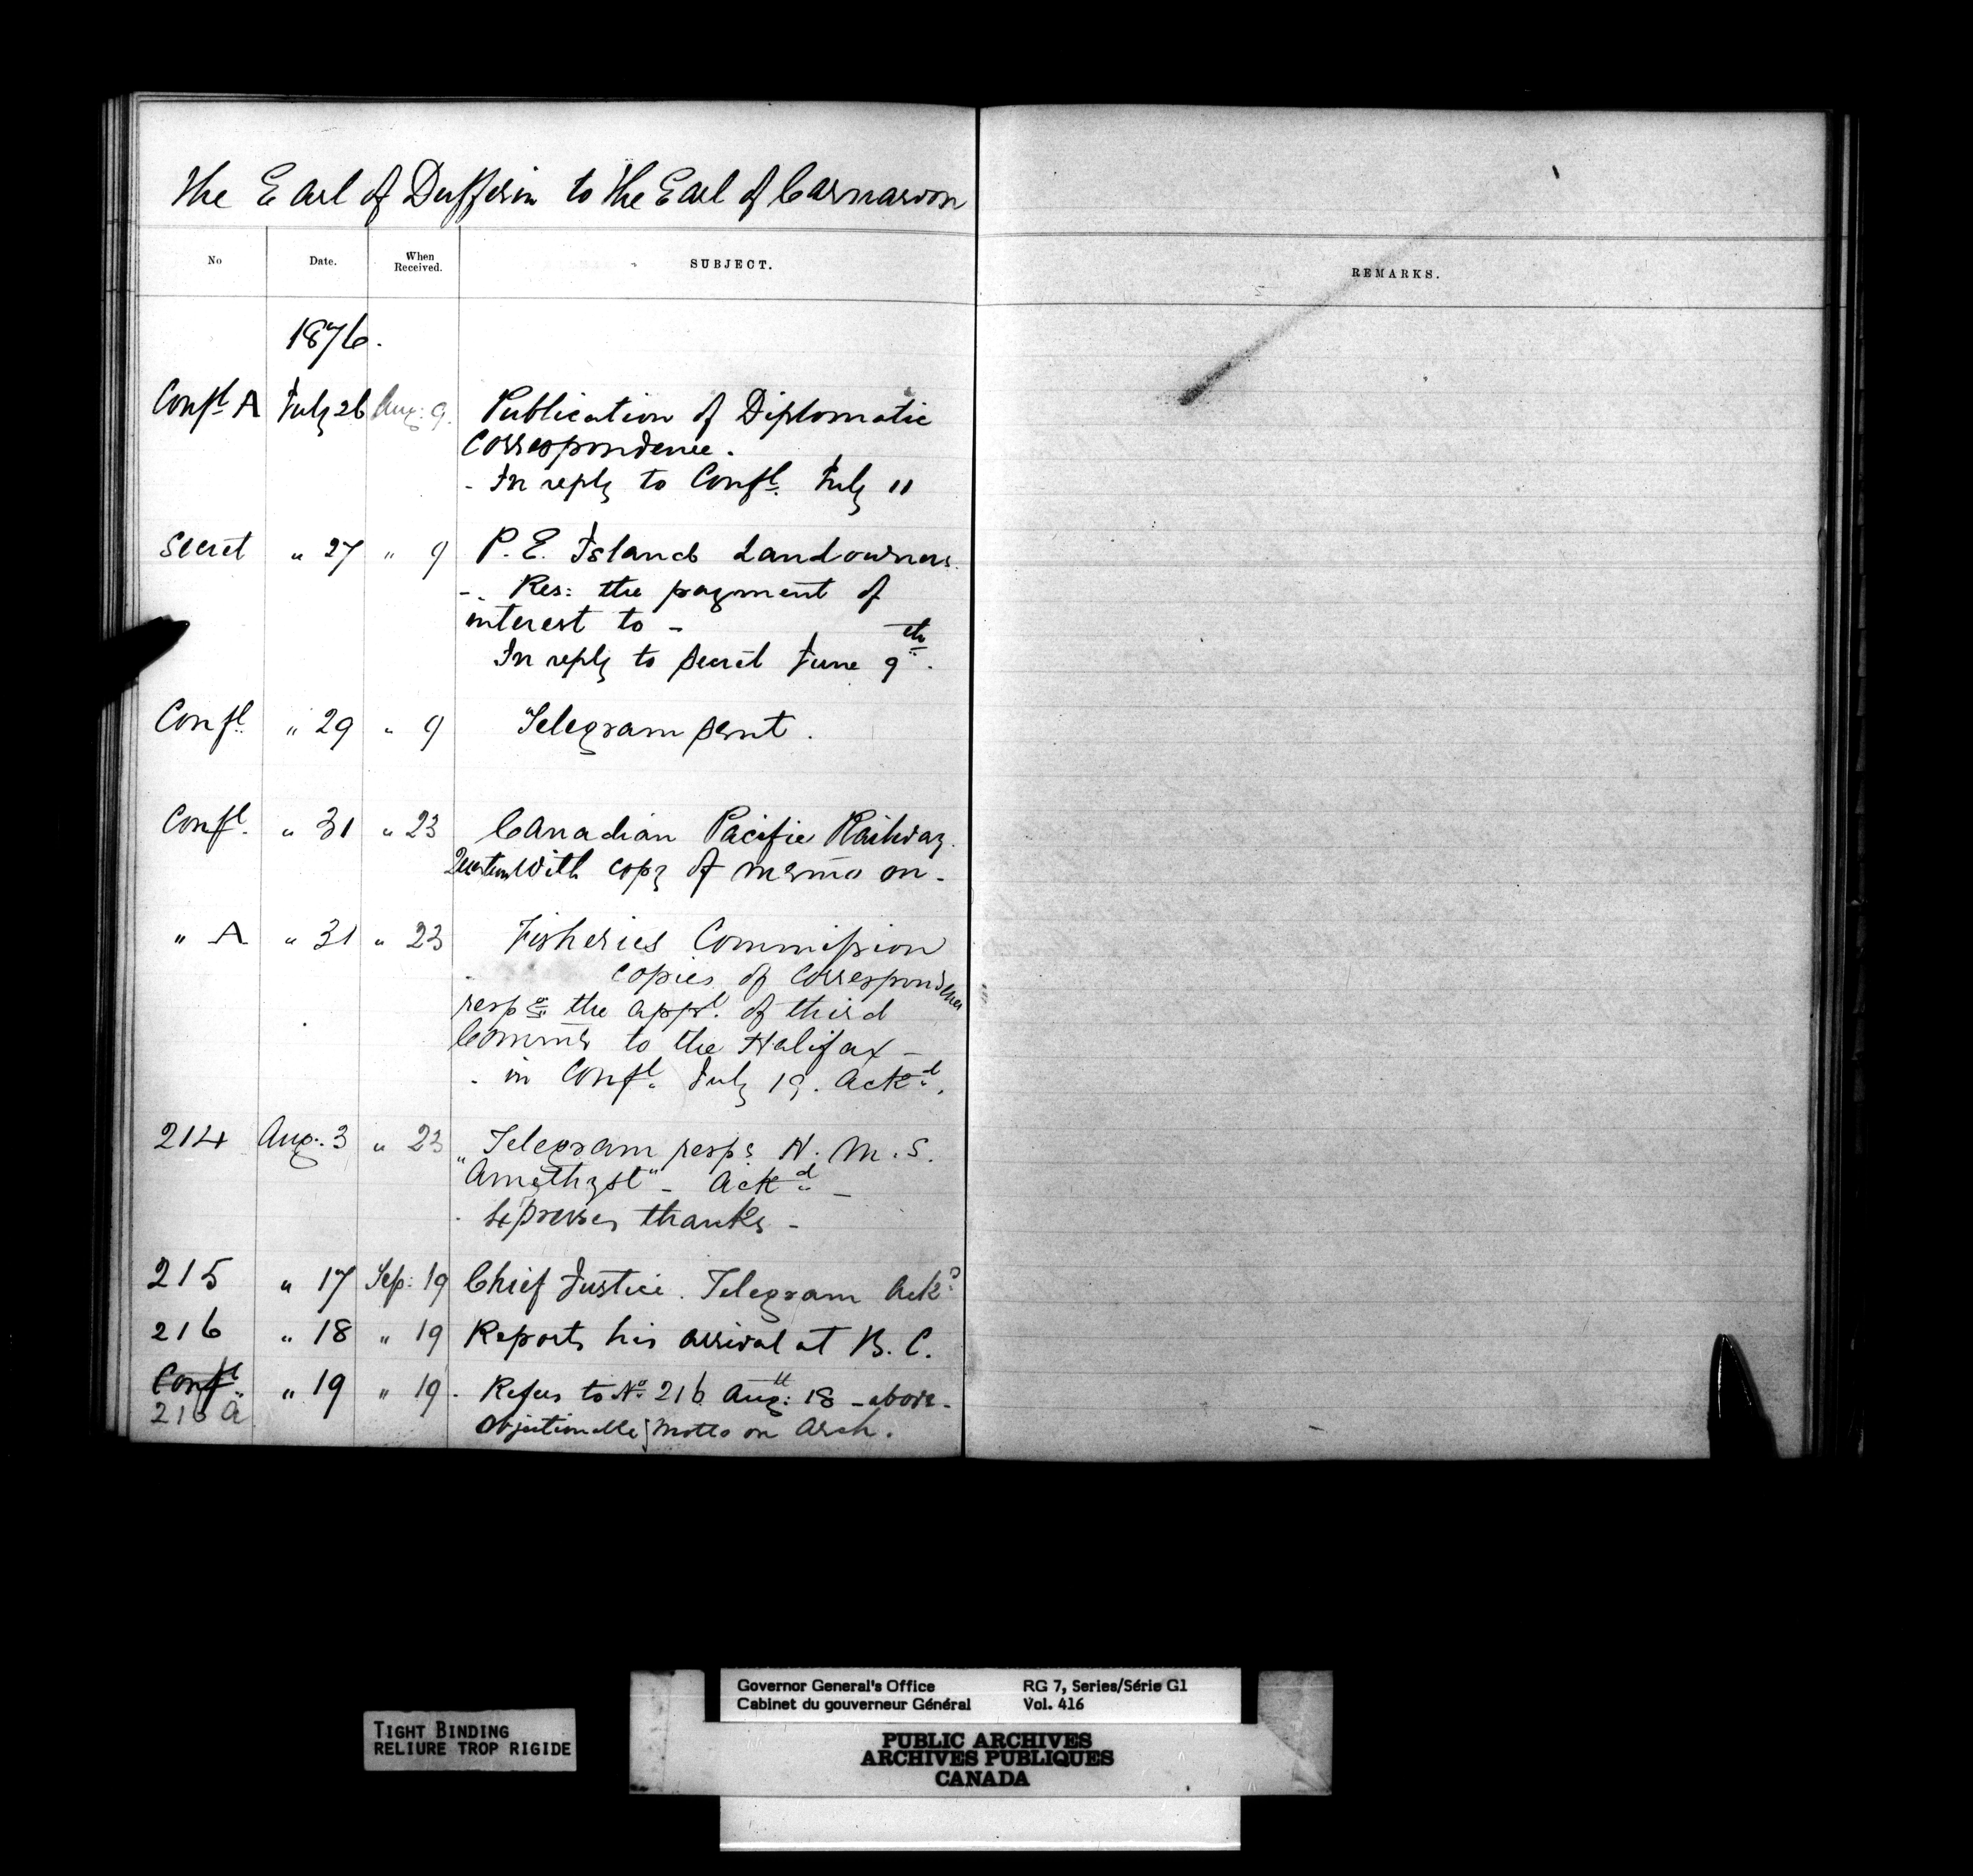 The Earl of Dufferin to the Earl of Carnarvon
No Date. When Received. SUBJECT. REMARKS.
1876.
Confl. A July 26 Aug: 9. Publication of Diplomatic
Correspondence.
- In reply to Confl. July 11
Secret " 27 " 9 P. E. Island Landowners.
- Res: the payment of
interest to -
In reply to Secret June 9th.
Confl. " 29 " 9 Telegram sent.
Confl. " 31 " 23 Canadian Pacific Railway.
Question With copy of memo on -
" A " 31 " 23 Fisheries Commission
copies of Correspondence
respg the appt. of third
Commr to the Halifax -
- in Confl. July 19. Ackd.
214 Aug. 3 " 23 Telegram resps H. M. S.
"Amethyst" - Ackd -
- Expresses thanks -
215 " 17 Sep: 19 Chief Justice. Telegram Ackd
216 " 18 " 19 Reports his arrival at B. C.
Confl. " 19 " 19 - Refers to No 216 Aug: 18 - above -
216 a Objectionable Motto on Arch.
TIGHT BINDING
RELIURE TROP RIGIDE
Governor General's Office RG 7, Series/Série G1
Cabinet du gouverneur Général Vol. 416
PUBLIC ARCHIVES
ARCHIVES PUBLIQUES
CANADA